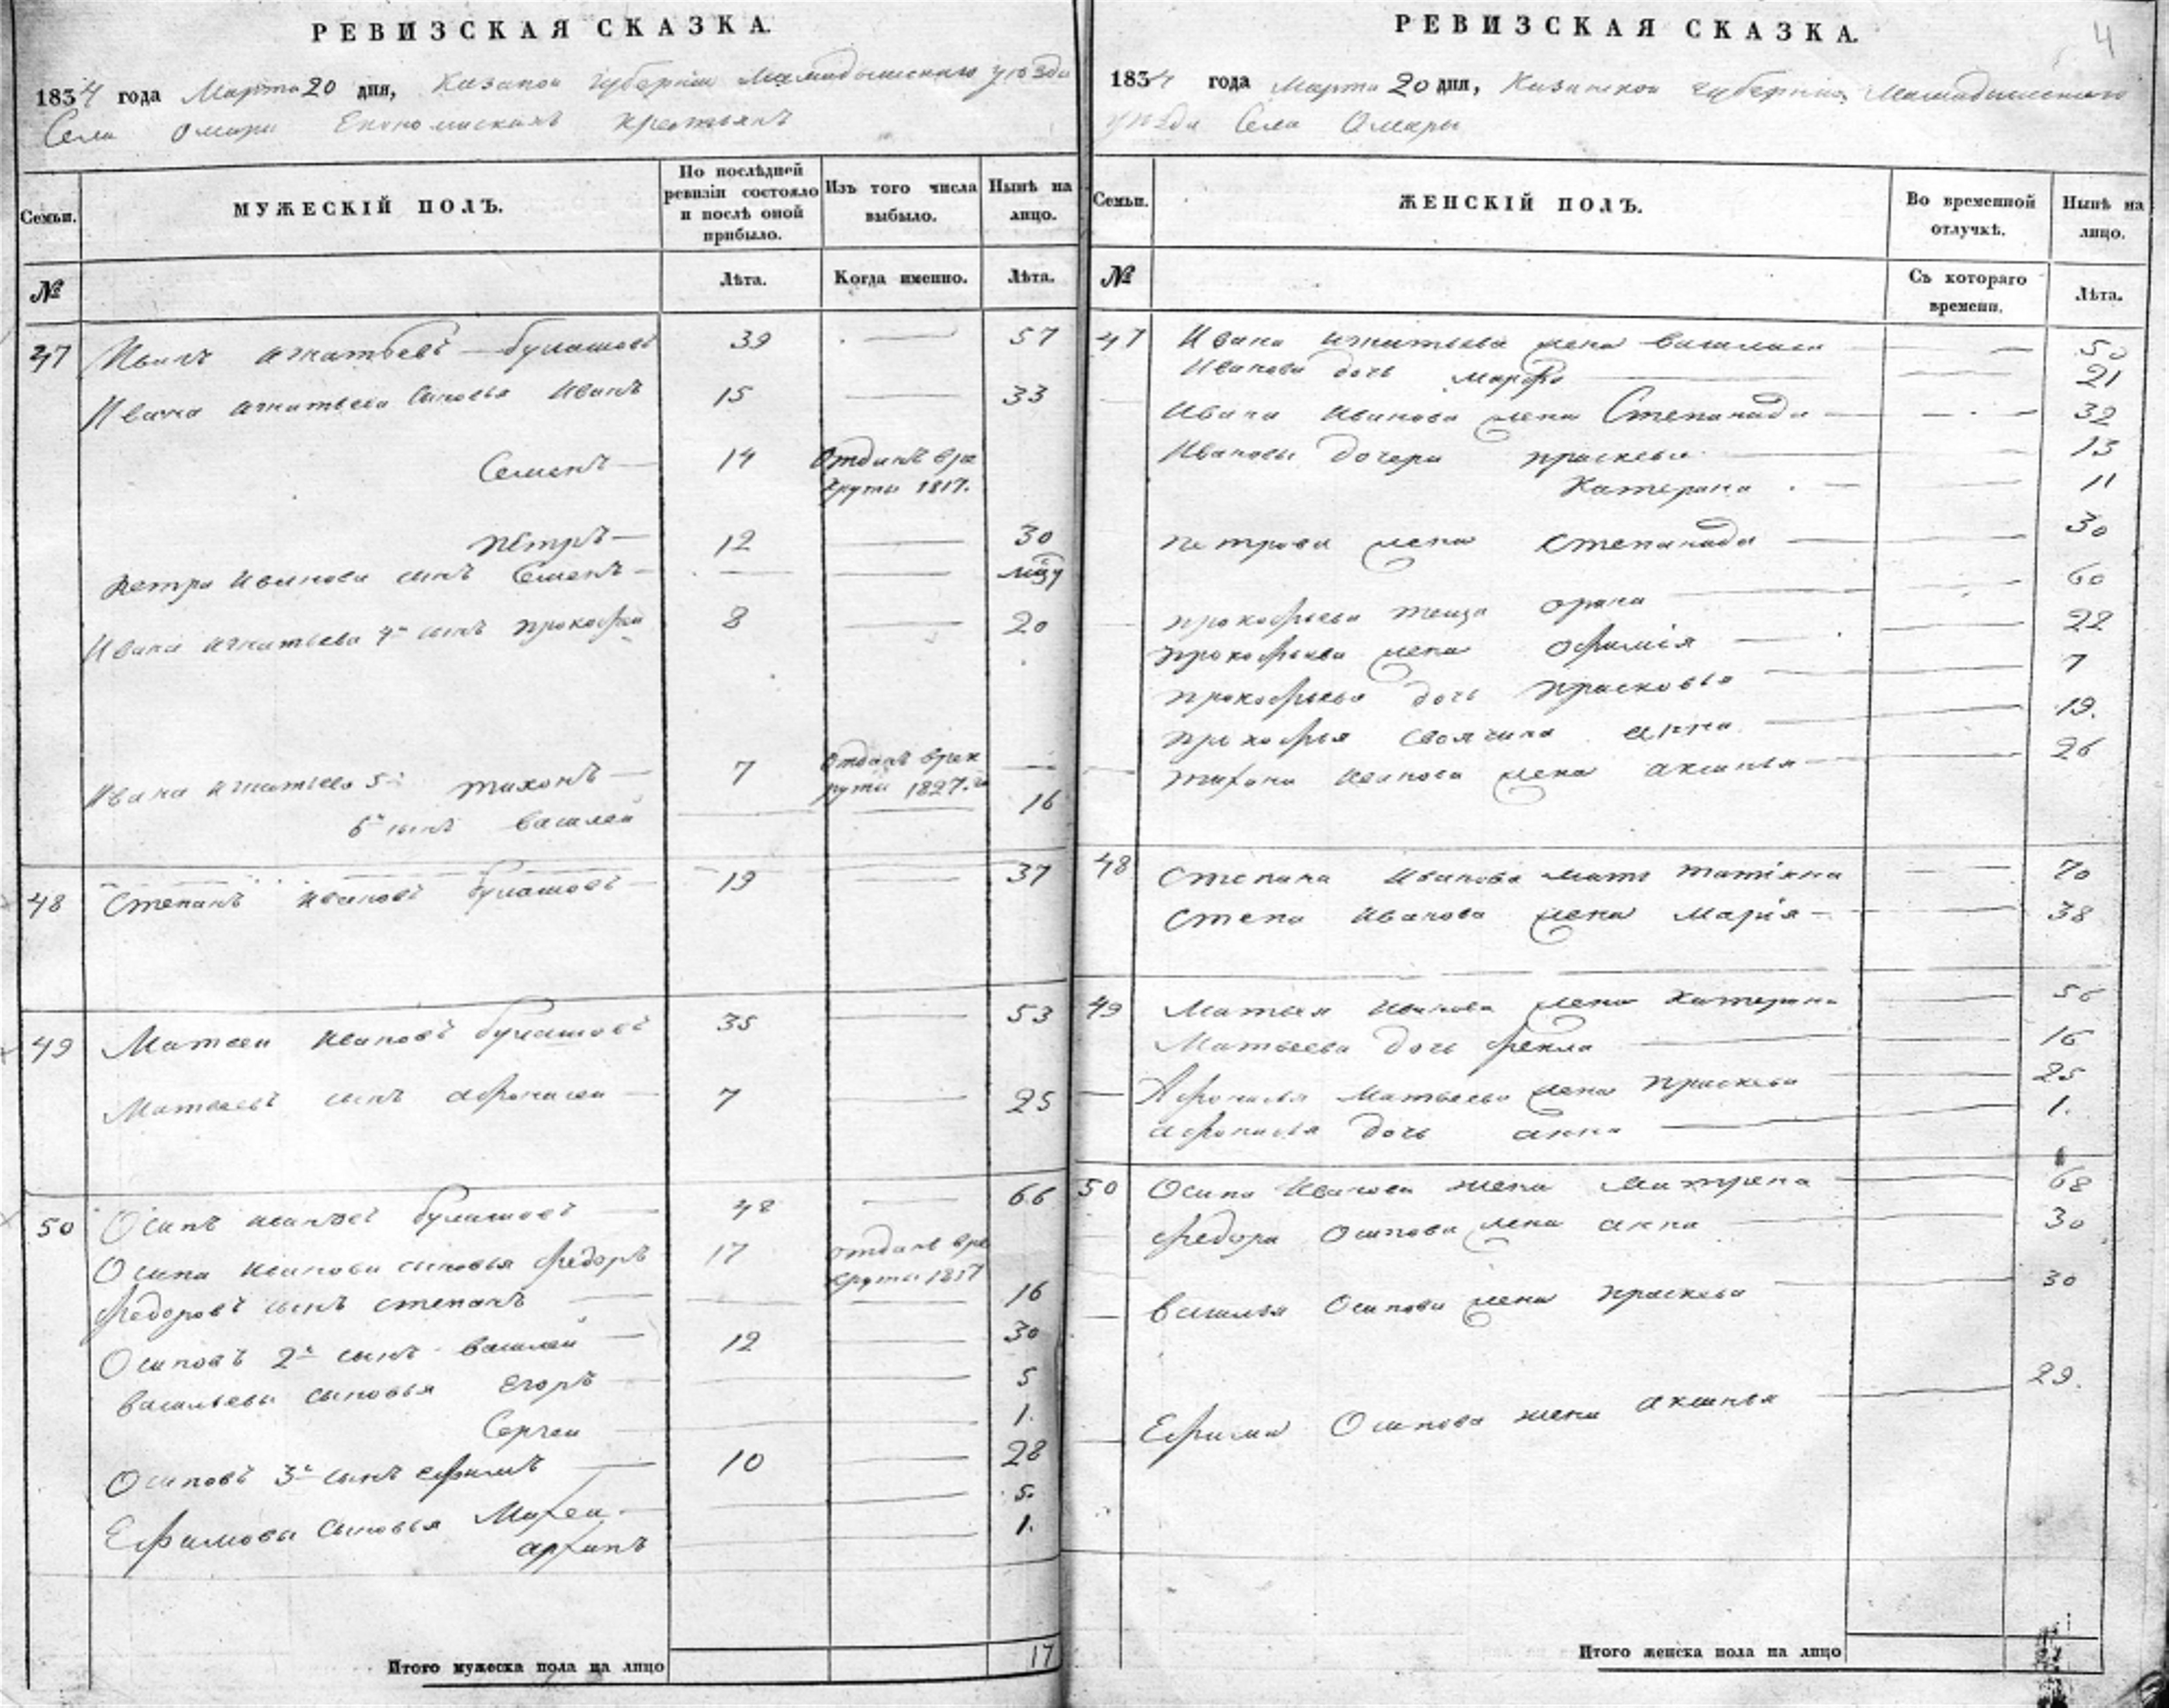 РЕВИЗСКАЯ СКАЗКА.
1834 года Марта 20 дня, Казанской губернии Мамадышскаго уезда
Села Омари Економическихъ крестьянъ
Семьи.
МУЖЕСКІЙ ПОЛЪ.
По послѣдней ревизіи состояло и послѣ оной прибыло.
Изъ того числа выбыло.
Нынѣ на лицо.
№
Лѣта.
Когда именно.
Лѣта.
47 Иванъ игнатьевъ 39 57
Ивана игнатьева сыновья Иванъ 15 33
Семенъ 14 Отданъ врекруты 1817.
Петръ 12 30
Петра Иванова сынъ Семенъ
Ивана игнатьева 4й сынъ прокофей 8 20
Ивана игнатьева 5й тихонъ 7 отданъ врекруты 1827.го
6й сынъ василей 16
48 Степанъ ивановъ 19 37
49 Матвеи ивановъ 35 53
Матвеевъ сынъ афонасеи 7 25
50 Осипъ ивановъ 48 66
Осипа иванова сыновья федоръ 17 отданъ врекруты 1817
федоровъ сынъ степанъ 16
Осиповъ 2й сынъ василей 12 30
васильевы сыновья егоръ 5
Сергеи 1.
Осиповъ 3й сынъ ефимъ 10 28
Ефимовы сыновья Михеи 5.
архипъ 1.
Итого мужеска пола на лицо 17
РЕВИЗСКАЯ СКАЗКА.
4
1834 года Марта 20 дня, Казанской губернии, Мамадышскаго
уезда Села Омары
Семьи.
ЖЕНСКІЙ ПОЛЪ.
Во временной отлучкѣ.
Нынѣ на лицо.
№
Съ котораго времени.
Лѣта.
47 Ивана игнатьева жена василиса 50
Иванова дочь марфа 21
Ивана Иванова жена Степанида 32
Ивановы дочери праскевья 13
Катерина 11
петрова жена степанида 30
прокофьева теща орина 60
прокофьева жена офимія 22
прокофьева дочь прасковья 7
прокофья своячина анна 19.
тихона иванова жена аксинья 26
48 Степана Иванова мать татіяна 70
Степа Иванова жена Марія 38
49 Матвея Иванова жена Катерина 56
Матвеева дочь фекла 16
Афонасья Матвеева жена праскевья 25
афонасья дочь анна 1.
50 Осипа Иванова жена матрена 68
федора осипова жена анна 30
василья Осипова жена праскевья 30
Ефима Осипова жена аксинья 29.
Итого женска пола на лицо